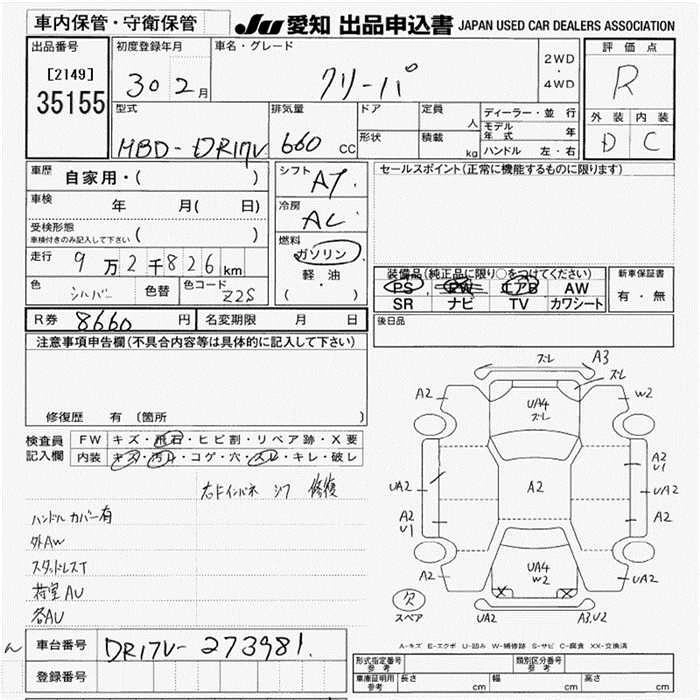 車内保管・守衛保管
JU 愛知 出品申込書 JAPAN USED CAR DEALERS ASSOCIATION
出品番号
[2149]
35155
初度登録年月
30 2月
車名・グレード
クリーパ
2WD
・
4WD
評価点
R
外装 内装
D C
型式
HBD-DR17V
排気量
660 cc
ドア
形状
定員
人
積載
kg
ディーラー・並行
モデル年式 年
ハンドル 左・右
車歴
自家用・( )
車検
年 月( 日)
受検形態
車検付きのみ記入して下さい ( )
走行
9万2千826km
色
シルバー
色替
色コード
Z2S
シフト
AT
冷房
AC
燃料
ガソリン
軽・油
( )
セールスポイント(正常に機能するものに限ります)
装備品(純正品に限り○をつけてください)
PS PW エアB AW
SR ナビ TV カワシート
新車保証書
有・無
後日品
R券 8660円
名変期限 月 日
注意事項申告欄(不具合内容等は具体的に記入して下さい)
修復歴 有 〔箇所 〕
検査員
記入欄
FW キズ・飛石・ヒビ割・リペア跡・X要
内装 キズ・汚れ・コゲ・穴・スレ・キレ・破レ
右Fインパネ ジク 修復
ハンドルカバー有
外AW
スタッドレスT
荷室AU
各AU
ズレ A3
ズレ
A2
W2
UA4
ズレ
A2
U1
UA2
A2
UA2
A2
U1
A2
A2
UA4
W2
UA2
欠
スペア
UA2
A3.U2
A-キズ E-エクボ U-凹み W-補修跡 S-サビ C-腐食 XX-交換済
ん
車台番号
DR17V-273981.
登録番号
形式指定番号
参考
類別区分番号
参考
車庫証明用
参考
長さ cm
幅 cm
高さ cm